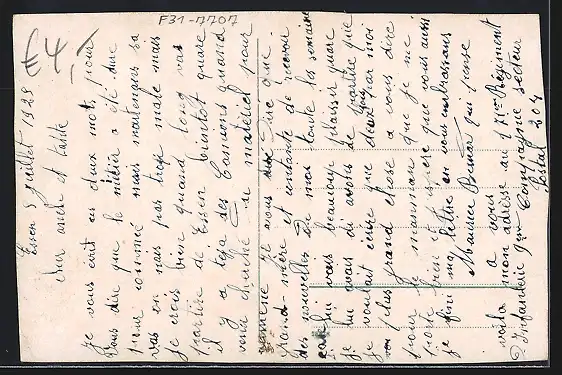 F31-7707
€4,-
Essen 5 juillet 1925
Cher oncle et tante
je vous écrit ces deux mot, pour
vous dire que le métier a été dure
pour commencé mais maintenans sa
vas on nais pas trop male mais
je crois bien quand long vas
partire de Essen bientot quare
il y a déja des Camions quand
vous cherché le matériel pour
je vous dire que
grand-mère et contante de recevoir
des nouvelles de moi toute les semaine
vais beaucoup plaisir quare
je lui avais di avans de partire que
je voulait écrire que deux fois par moi
plus grand chose a vous dire
pour le manman que je me
porte bien et j'espere que vous aussi
je fini ma lettre en vous embrassans
Maurice qui pense
a vous
voila mon adresse au Régiment
D'Infanterie Compagnie secteur
Postal 204